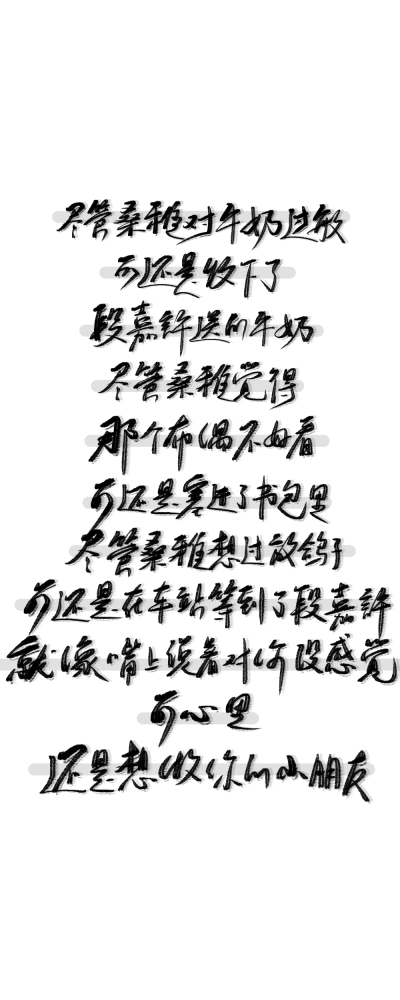 尽管桑稚对牛奶过敏
可还是收下了
段嘉許送的牛奶
尽管桑稚觉得
那个布偶不好看
可还是塞进了书包里
尽管桑稚想过放鸽子
可还是在车站等到了段嘉許
就像嘴上说着对你没感觉
可心里
还是想做你的小朋友